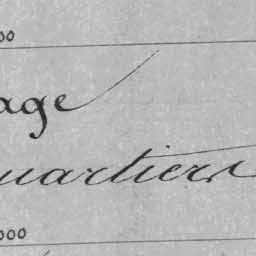 00
age
uartiers
000